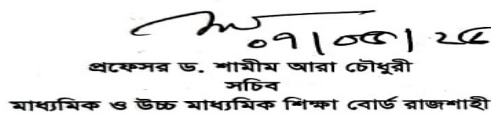 ০৭|০৫|২৫
প্রফেসর ড. শামীম আরা চৌধুরী
সচিব
মাধ্যমিক ও উচ্চ মাধ্যমিক শিক্ষা বোর্ড রাজশাহী